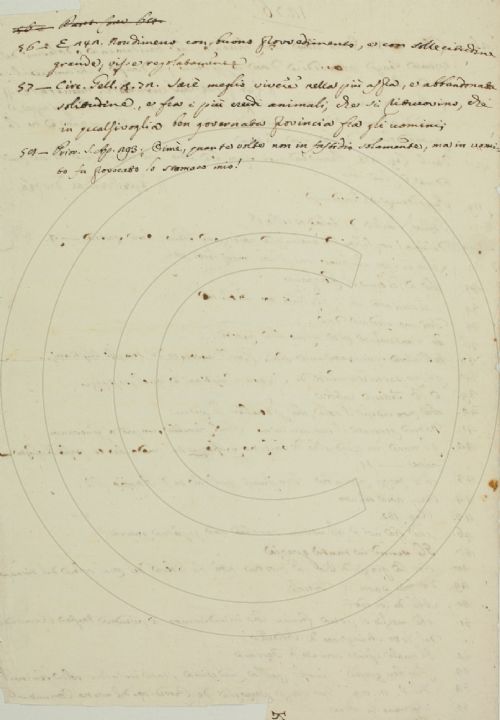 56 — 
56 = E. 141. Nondimeno con buono provvedimento, e con sollecitudine
grande, visse regolatamente
57 — Circ. Gell. 8. 71. Saria meglio vivere nella più aspra, e abbandonata
solitudine, e fra i più crudi animali, che si ritrovino, che
in qualsivoglia ben governata provincia fra gli uomini;
58 — Oimè, quante volte non in fastidio solamente, ma in vomi-
to fu provocato lo stomaco mio!